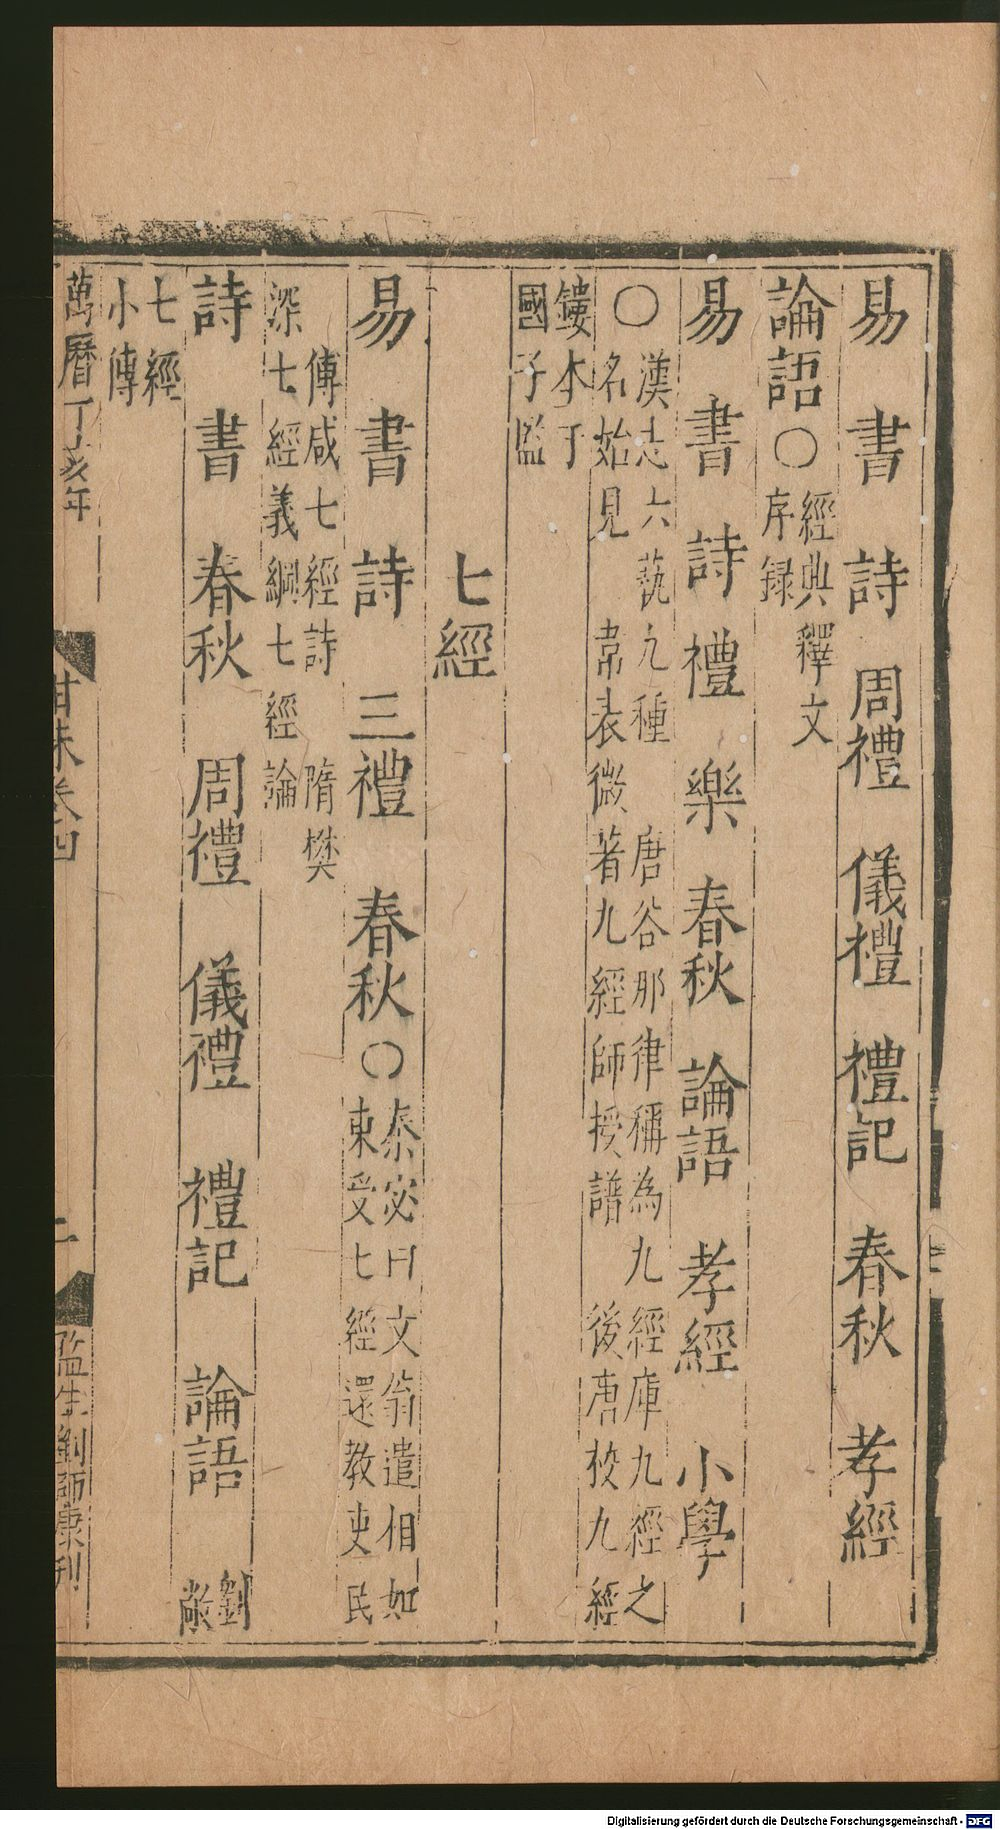 易 書 詩 周禮 儀禮 禮記 春秋 孝經
論語〇經典釋文
序録
易 書 詩 禮 樂 春秋 論語 孝經 小學
〇漢志六藝九種 唐谷那律稱為九經庫九經之
名始見 韋表微著九經師授譜 後唐校九經
鏤本于
國子監
七經
易 書 詩 三禮 春秋〇秦宓曰文翁遣相如
東受七經還教吏民
傅咸七經詩 隋樊
深七經義綱七經論
詩 書 春秋 周禮 儀禮 禮記 論語 劉
敞
七經
小傳
萬曆丁亥年
卷四
二
監生劉師康刊
Digitalisierung gefördert durch die Deutsche Forschungsgemeinschaft - DFG